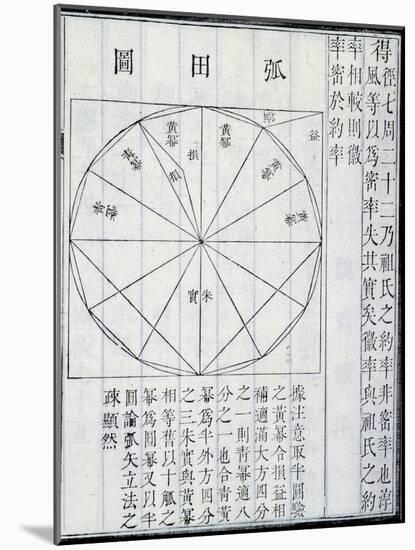 得徑七周二十二乃祖氏之約率非密率也淳
風等以爲密率失其實矣徽率與祖氏之約
率相較則徽
率密於約率
弧田圖
益
黃冪
損
黃冪
損
青冪
青冪
青冪
朱實
據注意取半圓驗
之黃冪令損益相
補適滿大方四分
之一則青冪適八
分之一也合青黃
冪爲半外方四分
之三朱實與黃冪
相等舊以十觚之
冪爲圓冪又以半
圓論弧矢立法之
疎顯然